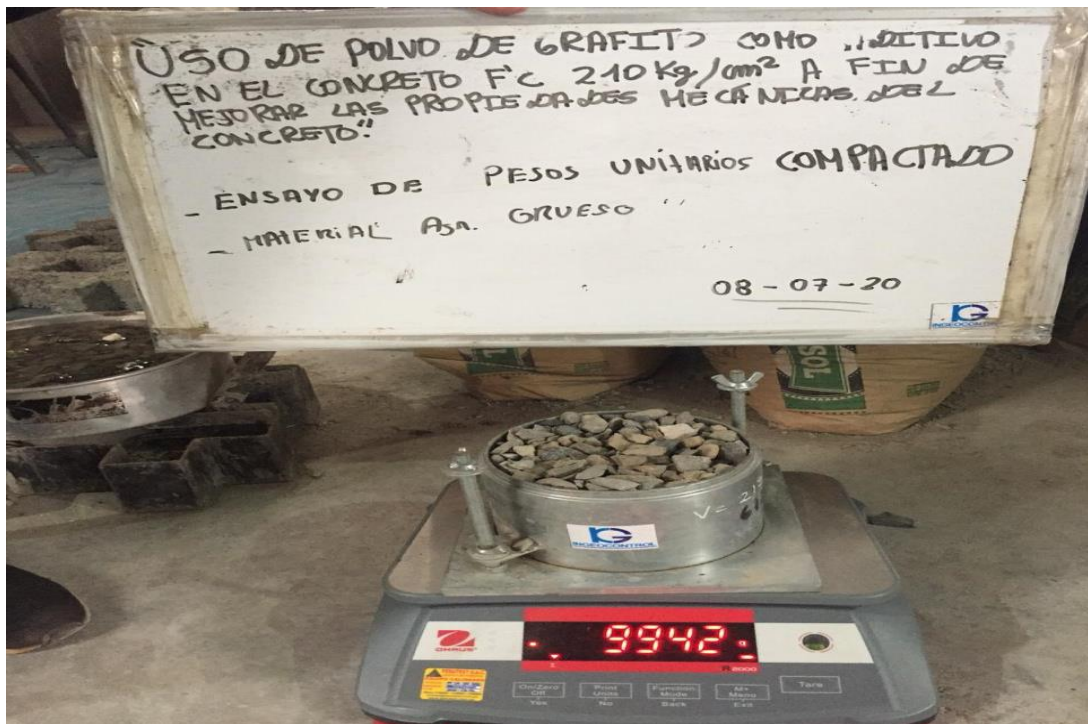 "USO DE POLVO DE GRAFITO COMO ADITIVO
EN EL CONCRETO F'C 210 Kg/cm² A FIN DE
MEJORAR LAS PROPIEDADES MECÁNICAS DEL
CONCRETO"
- ENSAYO DE PESOS UNITARIOS COMPACTADO
- MATERIAL Agr. GRUESO
08-07-20
INGEOCONTROL
SOL
V= 219
INGEOCONTROL
9942 g
OHAUS
R 2000
On/Zero Off Yes
Print Units No
Function Mode Back
M+ Menu Exit
Tare